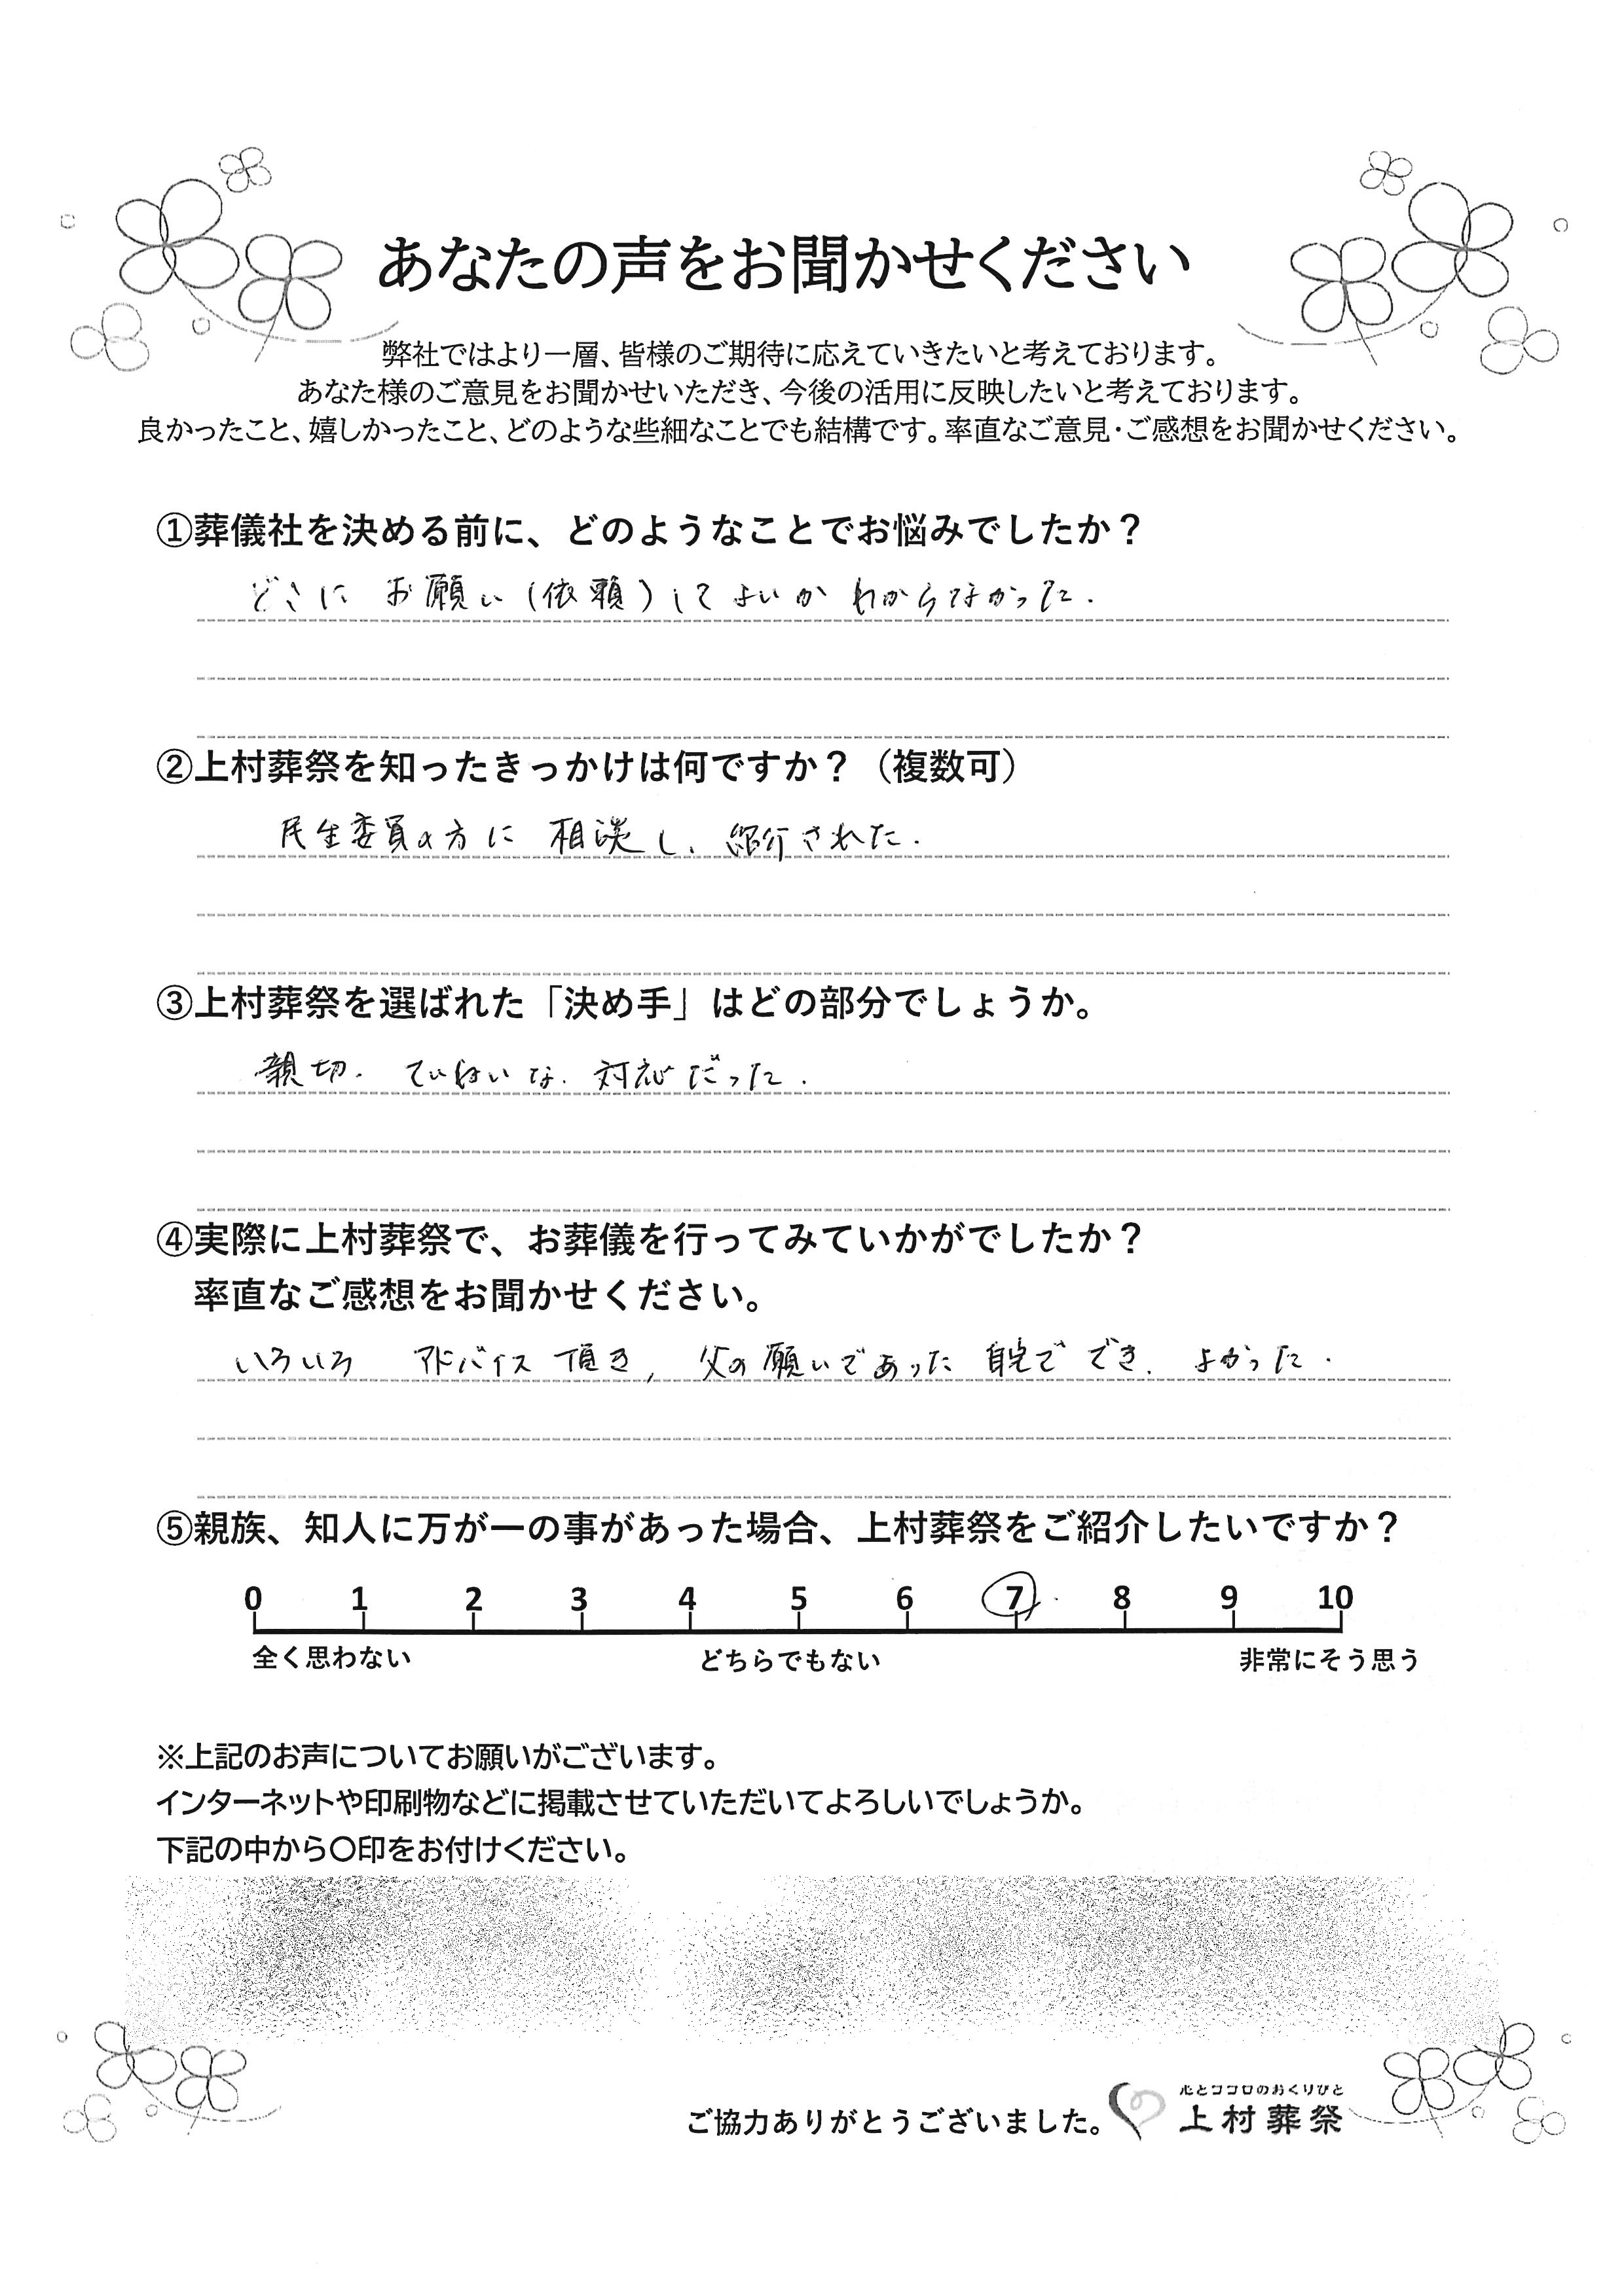 あなたの声をお聞かせください
弊社ではより一層、皆様のご期待に応えていきたいと考えております。
あなた様のご意見をお聞かせいただき、今後の活用に反映したいと考えております。
良かったこと、嬉しかったこと、どのような些細なことでも結構です。率直なご意見・ご感想をお聞かせください。
①葬儀社を決める前に、どのようなことでお悩みでしたか？
どこに お願い(依頼)してよいか わからなかった.
②上村葬祭を知ったきっかけは何ですか？（複数可）
民生委員の方に 相談し、紹介された.
③上村葬祭を選ばれた「決め手」はどの部分でしょうか。
親切. ていねいな. 対応だった.
④実際に上村葬祭で、お葬儀を行ってみていかがでしたか？
率直なご感想をお聞かせください。
いろいろ アドバイス頂き, 父の願いであった 自宅で でき. よかった.
⑤親族、知人に万が一の事があった場合、上村葬祭をご紹介したいですか？
0 1 2 3 4 5 6 7 8 9 10
全く思わない どちらでもない 非常にそう思う
※上記のお声についてお願いがございます。
インターネットや印刷物などに掲載させていただいてよろしいでしょうか。
下記の中から〇印をお付けください。
心とココロのおくりびと
ご協力ありがとうございました。 上村葬祭